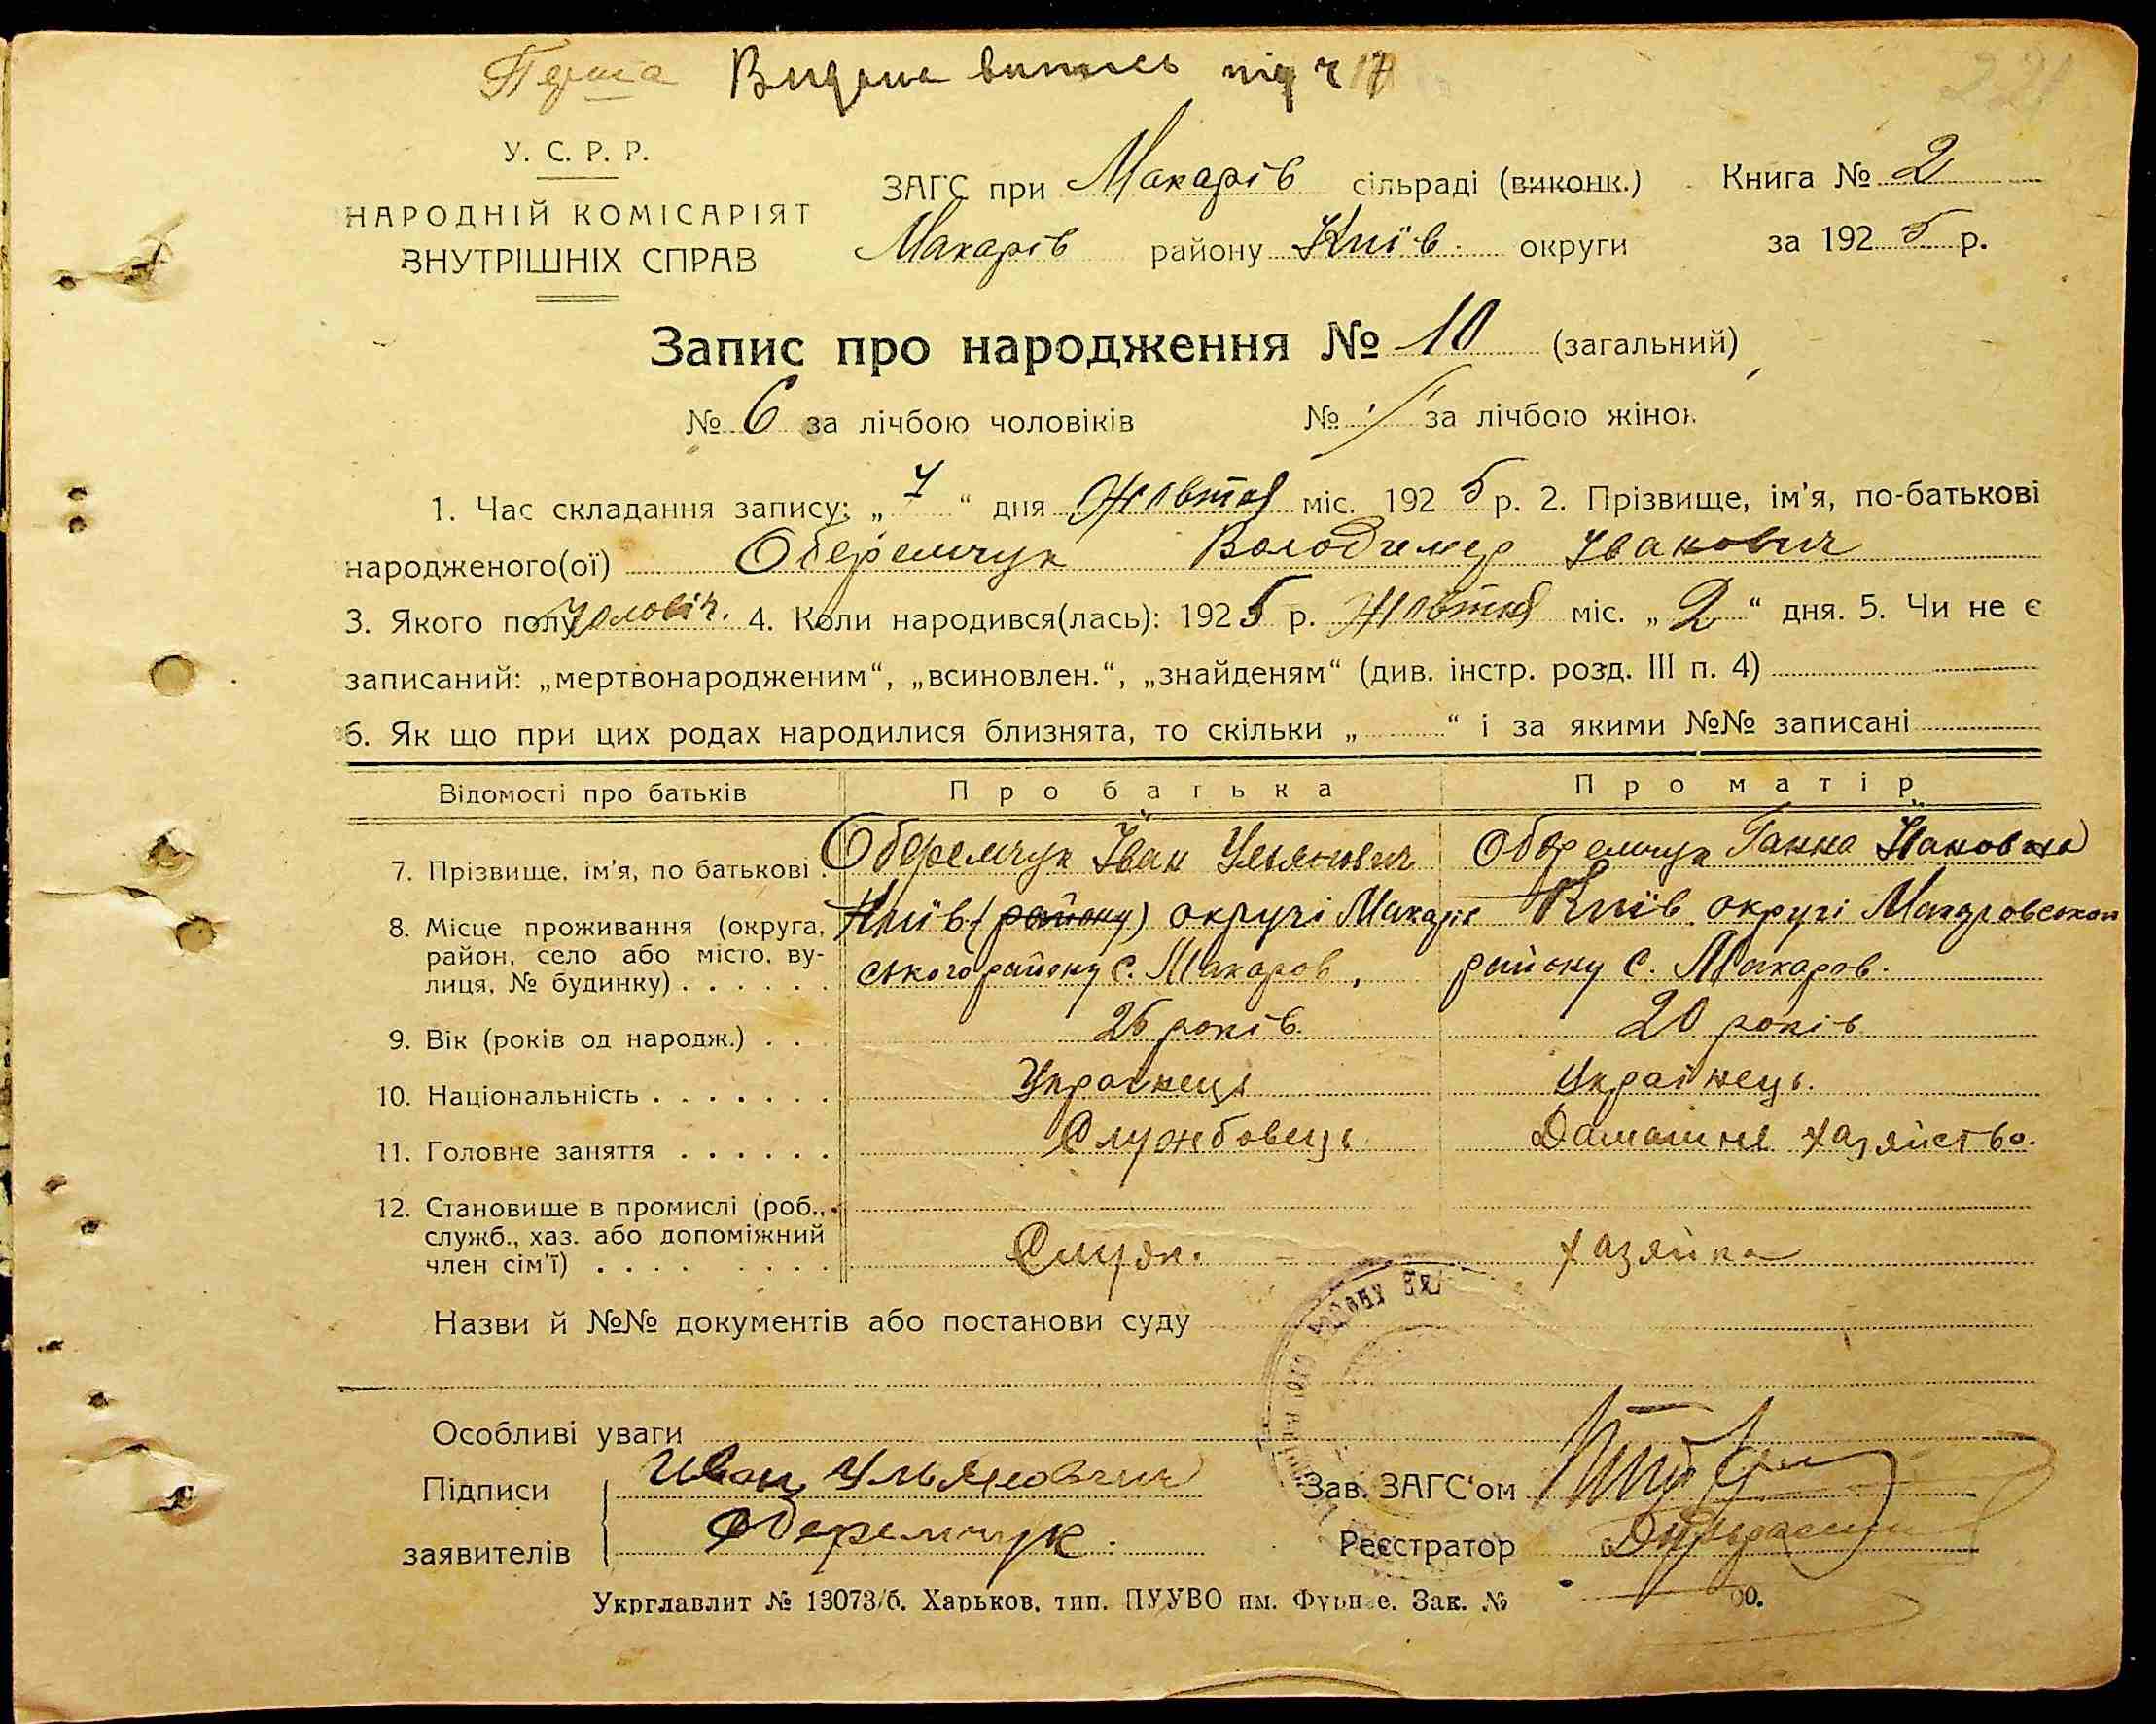 Перша Видана випись під ч 17
224
У. С. Р. Р.
НАРОДНІЙ КОМІСАРІЯТ
ВНУТРІШНІХ СПРАВ
ЗАГС при Макарів сільраді (виконк.) Книга № 2
Макарів району Київ. округи за 1925 р.
Запис про народження № 10 (загальний)
№ 6 за лічбою чоловіків № за лічбою жінок
1. Час складання запису: „7“ дня Жовтня міс. 1925 р. 2. Прізвище, ім'я, по-батькові
народженого(ої) Оберемчук Володимер Іванович
3. Якого полу чоловіч. 4. Коли народився(лась): 1925 р. Жовтня міс. „2“ дня. 5. Чи не є
записаний: „мертвонародженим“, „всиновлен.“, „знайденям“ (див. інстр. розд. III п. 4)
6. Як що при цих родах народилися близнята, то скільки „ “ і за якими №№ записані
Відомості про батьків Про батька Про матір
7. Прізвище, ім'я, по батькові . Оберемчук Іван Ульянович Оберемчук Ганна Івановна
8. Місце проживання (округа, Київ. (району) округи Макарів Київ округи Макаровського
район, село або місто, ву-
лиця, № будинку) . . . . . . ського району с. Макаров, району с. Макаров.
9. Вік (років од народж.) . . 26 років. 20 років
10. Національність . . . . . . . Українець Українець.
11. Головне заняття . . . . . . Службовець Дамашнє хазяйство.
12. Становище в промислі (роб.,
служб., хаз. або допоміжний
член сім'ї) . . . . . . . . Служ. хазяйка
Назви й №№ документів або постанови суду
Особливі уваги
Підписи Иван Ульянович Зав. ЗАГС'ом
заявителів Оберемчук. Реєстратор
Укрглавлит № 13073/б. Харьков, тип. ПУУВО им. Фрунзе. Зак. № 00.